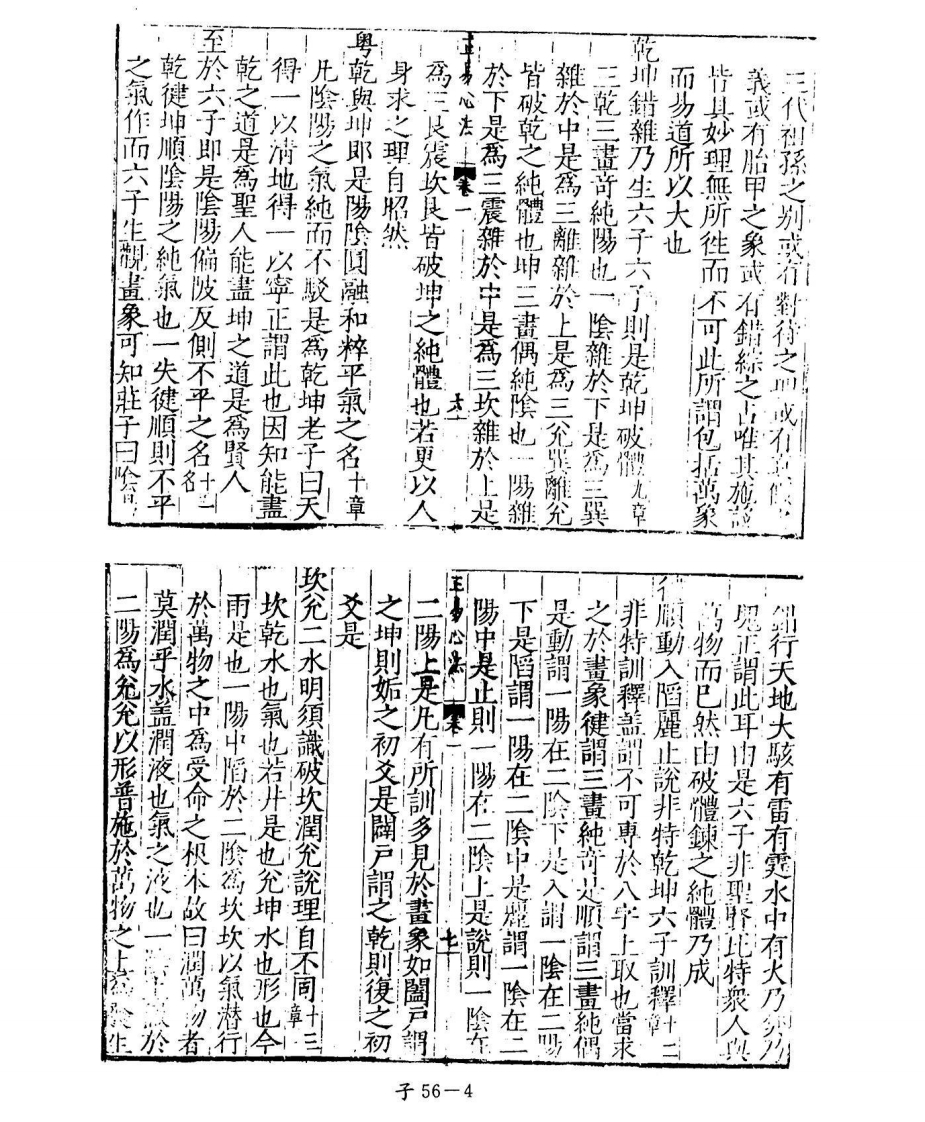 三代祖孫之别或有對待之 或有
義或有胎甲之象或有錯綜之占唯其施設
皆具妙理無所徃而不可此所謂包括萬象
而易道所以大也
乾坤錯雜乃生六子六子則是乾坤破體九章
三乾三畫竒純陽也一陰雜於下是爲三巽
雜於中是爲三離雜於上是爲三兊巽離兊
皆破乾之純體也坤三畫偶純陰也一陽雜
於下是爲三震雜於中是爲三坎雜於上是
正易心法 卷一 六
爲三艮震坎艮皆破坤之純體也若更以人
身求之理自昭然
粤乾與坤即是陽陰圓融和粹平氣之名十章
凡陰陽之氣純而不駁是爲乾坤老子曰天
得一以清地得一以寧正謂此也因知能盡
乾之道是爲聖人能盡坤之道是爲賢人
至於六子即是陰陽偏陂反側不平之名十一
乾徤坤順陰陽之純氣也一失徤順則不平
之氣作而六子生觀畫象可知莊子曰陰
行天地大駭有雷有霆水中有火乃
塊正謂此耳由是六子非聖賢比特衆人與
萬物而已然由破體鍊之純體乃成
徤順動入陷麗止說非特乾坤六子訓釋十二章
非特訓釋盖謂不可專於八字上取也當求
之於畫象徤謂三畫純竒是順謂三畫純偶
是動謂一陽在二陰下是入謂一陰在二陽
下是陷謂一陽在二陰中是麗謂一陰在二
陽中是止則一陽在二陰上是說則一陰在
正易心法 卷一 七
二陽上是凡有所訓多見於畫象如闔戸謂
之坤則姤之初爻是闢戸謂之乾則復之初
爻是
坎兊二水明須識破坎潤兊說理自不同十三章
坎乾水也氣也若井是也兊坤水也形也今
雨是也一陽中陷於二陰爲坎坎以氣潛行
於萬物之中爲受命之根本故曰潤萬物者
莫潤乎水盖潤液也氣之液也一 於
二陽爲兊兊以形普施於萬物之上爲發生
子56－4